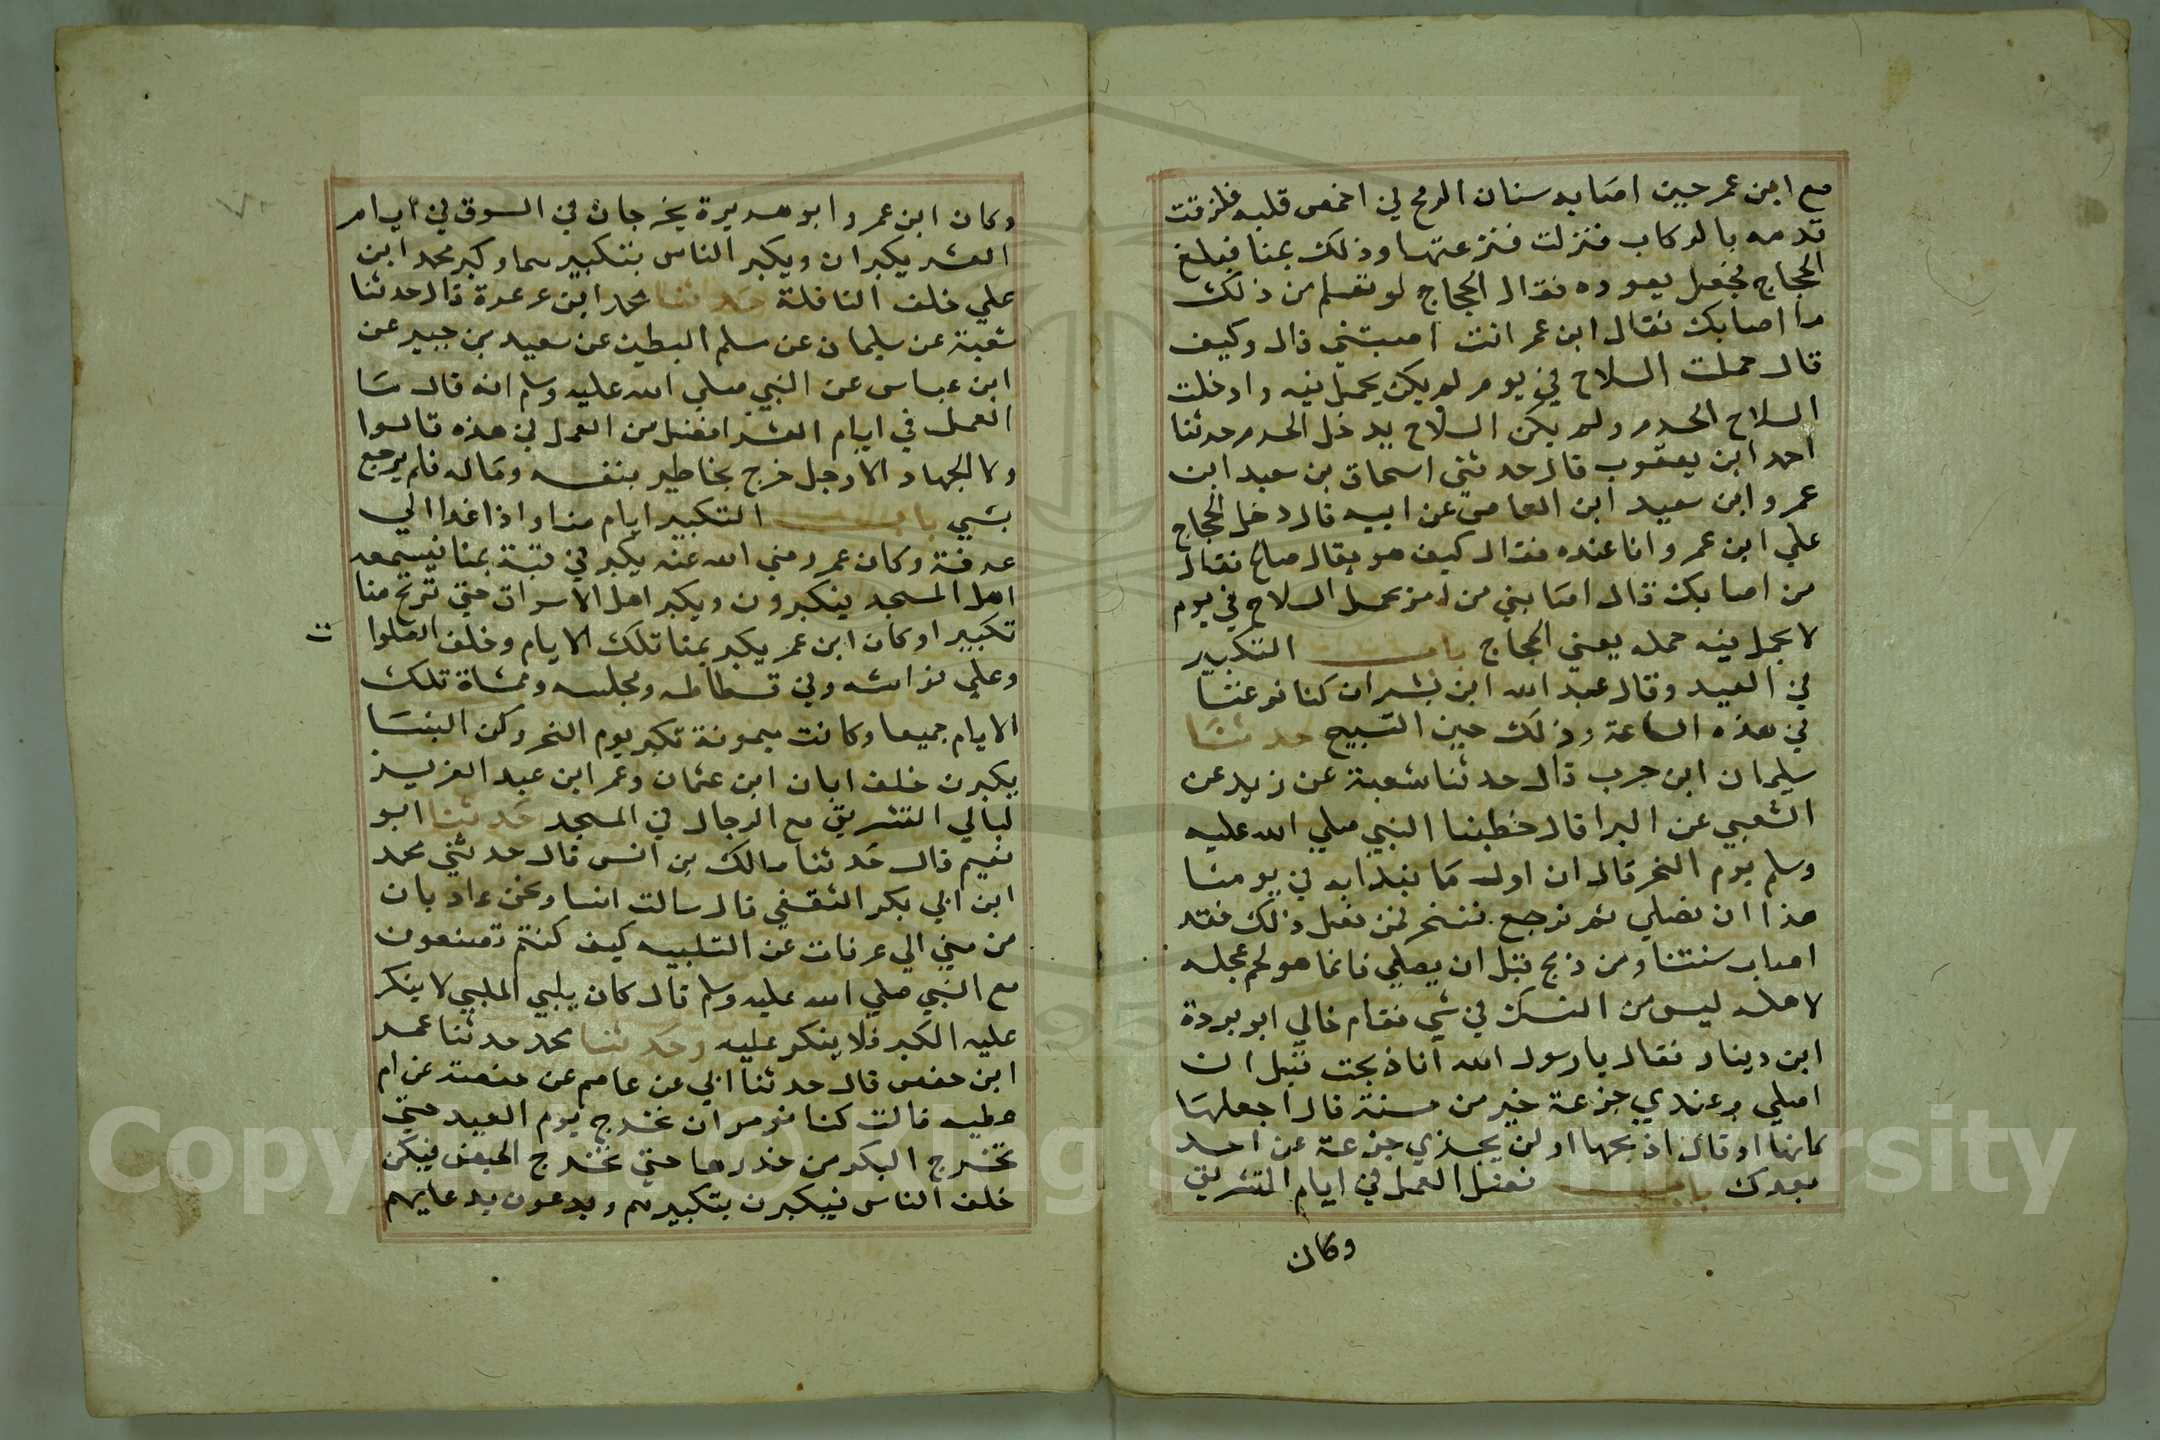 مع ابن عمر حين اصابه سنان الرمح في اخمص قلبه فلزقت
قدمه بالركاب فنزلت فنزعتها وذلك بمنا فبلغ
الحجاج فجعل يعوده فقال الحجاج لو تعلم من ذلك
ما اصابك فقال ابن عمر انت اصبتني قال وكيف
قال حملت السلاح في يوم لم يكن يحمل فيه وادخلت
السلاح الحرم ولم يكن السلاح يدخل الحرم حدثنا
احمد ابن يعقوب قال حدثني اسحاق بن سعيد ابن
عمرو ابن سعيد ابن العاص عن ابيه قال دخل الحجاج
علي ابن عمر وانا عنده فقال كيف هو فقال صالح فقال
من اصابك قال اصابني من امر بحمل السلاح في يوم
لا يحمل فيه حمله يعني الحجاج باب التكبير
في العيد وقال عبد الله ابن بشر ان كنا فرغنا
في هذه الساعة وذلك حين التسبيح حدثنا
سليمان ابن حرب قال حدثنا شعبة عن زبيد عن
الشعبي عن البرا قال خطبنا النبي صلي الله عليه
وسلم يوم النحر قال ان اول ما نبدا به في يومنا
هذا ان نصلي ثم نرجع فننحر فمن فعل ذلك فقد
اصاب سنتنا ومن ذبح قبل ان يصلي فانما هو لحم عجله
لاهله ليس من النسك في شي فقام خالي ابو بردة
ابن دينار فقال يا رسول الله انا ذبحت قبل ان
اصلي وعندي جزعة خير من مسنة قال اجعلها
مكانها او قال اذبحها ولن يجزي جزعة عن احد
بعدك باب فضل العمل في ايام التشريق
وكان
وكان ابن عمر وابو هريرة يخرجان في السوق في ايام
العشر يكبران ويكبر الناس بتكبيرهما وكبر محمد ابن
علي خلف النافلة حدثنا محمد ابن عرعرة قال حدثنا
شعبة عن سليمان عن مسلم البطين عن سعيد بن جبير عن
ابن عباس عن النبي صلي الله عليه وسلم انه قال ما
العمل في ايام العشر افضل من العمل في هذه قالوا
ولا الجهاد الا رجل خرج يخاطر بنفسه وماله فلم يرجع
بشي باب التكبير ايام منا واذا غدا الي
عرفة وكان عمر رضي الله عنه يكبر في قبة بمنا فيسمعه
اهل المسجد فيكبرون ويكبر اهل الاسواق حتي ترتج منا
تكبيرا وكان ابن عمر يكبر بمنا تلك الايام وخلف الصلوا
ت
وعلي فراشه وفي فسطاطه ومجلسه وممشاة تلك
الايام جميعا وكانت ميمونة تكبر يوم النحر وكن النسا
يكبرن خلف ابان ابن عثمان وعمر ابن عبد العزيز
ليالي التشريق مع الرجال في المسجد حدثنا ابو
نعيم قال حدثنا مالك بن انس قال حدثني محمد
ابن ابي بكر الثقفي قال سالت انسا ونحن غاديان
من مني الي عرفات عن التلبيه كيف كنتم تصنعون
مع النبي صلي الله عليه وسلم قال كان يلبي الملبي لا ينكر
عليه الكبر فلا ينكر عليه وحدثنا محمد حدثنا عمر
ابن حفص قال حدثنا ابي عن عاصم عن حفصة عن ام
عطيه قالت كنا نومر ان نخرج يوم العيد حتي
نخرج البكر من خدرها حتي نخرج الحيض فيكن
خلف الناس فيكبرن بتكبيرهم ويدعون بدعايهم
Copyright © King Saud University